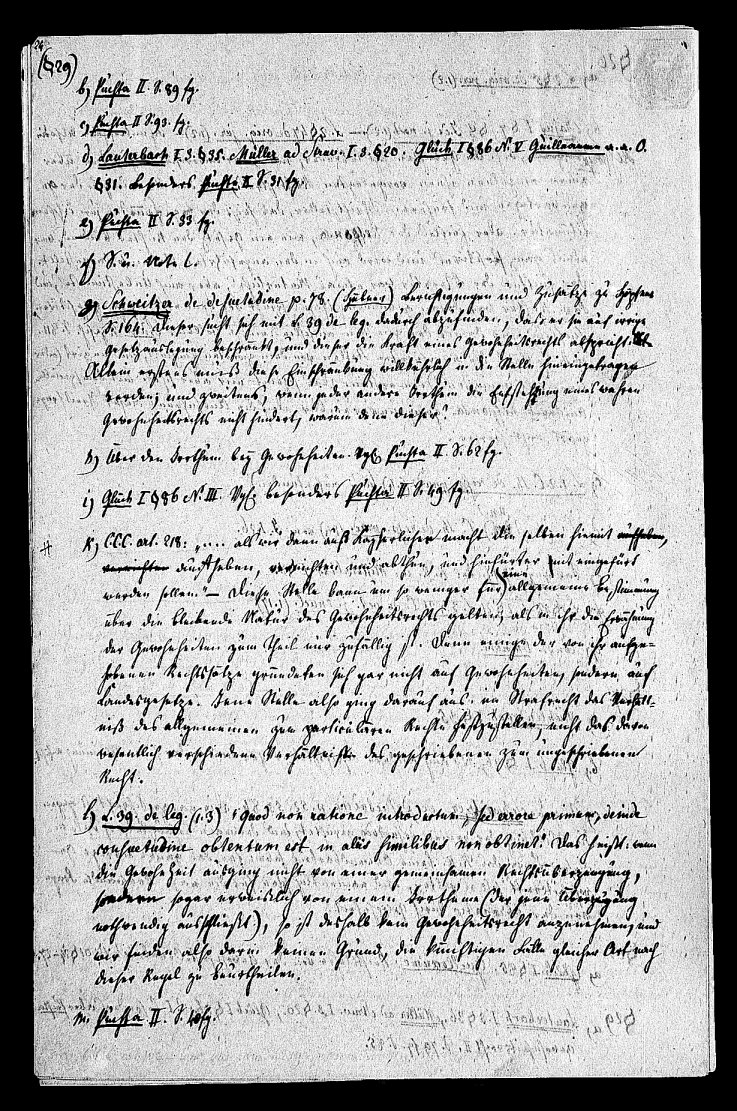 24
(§29)
b) Puchta II. S. 89 fg.
c) Puchta II S. 93. fg.
d) Lauterbach I. 3. §35. Müller ad Struv. I. 3. §20. Glück I §86 N. V Guilleaume a. a. O.
§31. Besonders Puchta II S. 91 fg.
e) Puchta II S. 53 fg.
f) S. u. Note l.
g) Schweitzer de desuetudine p. 78. (Hübner) Berichtigungen und Zusätze zu Höpfner
S. 164. Dieser sucht sich mit L. 39 de leg. dadurch abzufinden, daß er sie auf irrige
Gesetzauslegung beschränkt, und dieser die Kraft eines Gewohnheitsrechts abspricht.
Allein erstens muß diese Einschränkung willkührlich in die Stelle hineingetragen
werden; und zweitens, wenn jeder andere Irrthum die Entstehung eines wahren
Gewohnheitsrechts nicht hindert, warum denn dieser?
h) Über den Irrthum bey Gewohnheiten. Vgl. Puchta II S. 62 fg.
i) Glück I §86 N. III Vgl. besonders Puchta II S. 49 fg.
k) C.C.C. art. 218: „.... als wir dann auß Kayserlicher macht die selben hiemit aufheben,
vernichten aufheben, vernichten und abthun, und hinfürter nit eingefürt
werden sollen." – Diese Stelle kann um so weniger für eine allgemeine Bestimmung
über die bleibende Natur des Gewohnheitsrechts gelten, als in ihr die Erwähnung
der Gewohnheiten zum Theil nur zufällig ist. Denn einige der von ihr aufge-
hobenen Rechtssätze gründeten sich gar nicht auf Gewohnheiten, sondern auf
Landesgesetze. Jene Stelle also ging darauf aus, im Strafrecht das Verhält-
niß des allgemeinen zum particulären Rechte festzustellen, nicht das davon
wesentlich verschiedene Verhältniß des geschriebenen zum ungeschriebenen
Recht.
l) L. 39. de leg. (1. 3) „Quod non ratione introductum, sed errore primum, deinde
consuetudine obtentum est, in aliis similibus non obtinet." Das heißt: wenn
die Gewohnheit ausging nicht von einer gemeinsamen Rechtsüberzeugung,
sondern sogar erweislich von einem Irrthum (der jene Überzeugung
nothwendig ausschließt), so ist deshalb kein Gewohnheitsrecht anzunehmen, und
wir finden also darin keinen Grund, die künftigen Fälle gleicher Art nach
dieser Regel zu beurtheilen.
m) Puchta II. S. 40 fg.